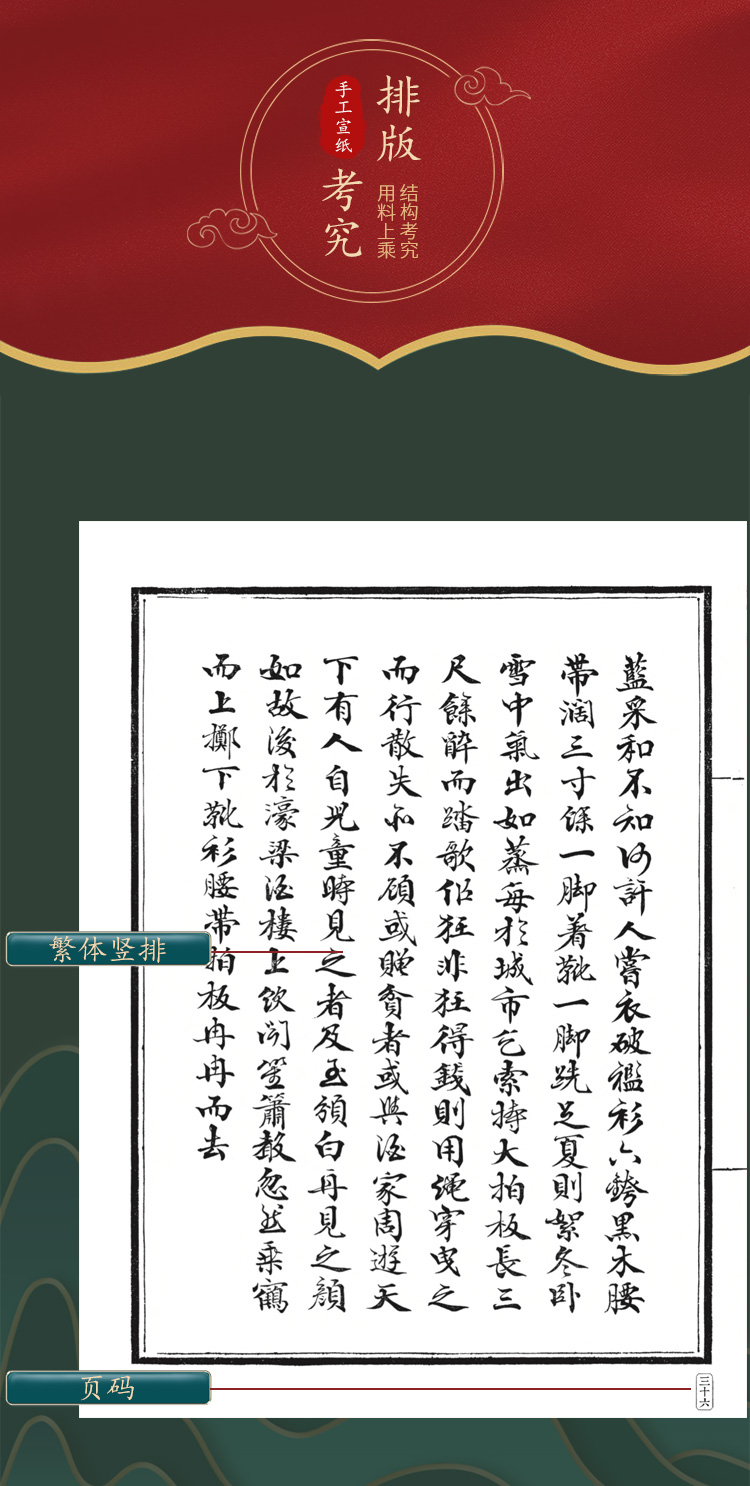 排版
考究
手工宣纸
结构考究
用料上乘
藍采和不知何許人嘗衣破襤衫六銙黑木腰
帶濶三寸餘一脚着靴一脚跣足夏則絮冬卧
雪中氣出如蒸每於城市乞索持大拍板長三
尺餘醉而踏歌似狂非狂得錢則用繩穿曳之
而行散失亦不顧或贈貧者或與酒家周遊天
下有人自兒童時見之者及至頒白再見之顏
如故後於濠梁酒樓上飲聞笙簫聲忽然乘鶴
而上擲下靴衫腰帶拍板冉冉而去
繁体竖排
页码
三十六